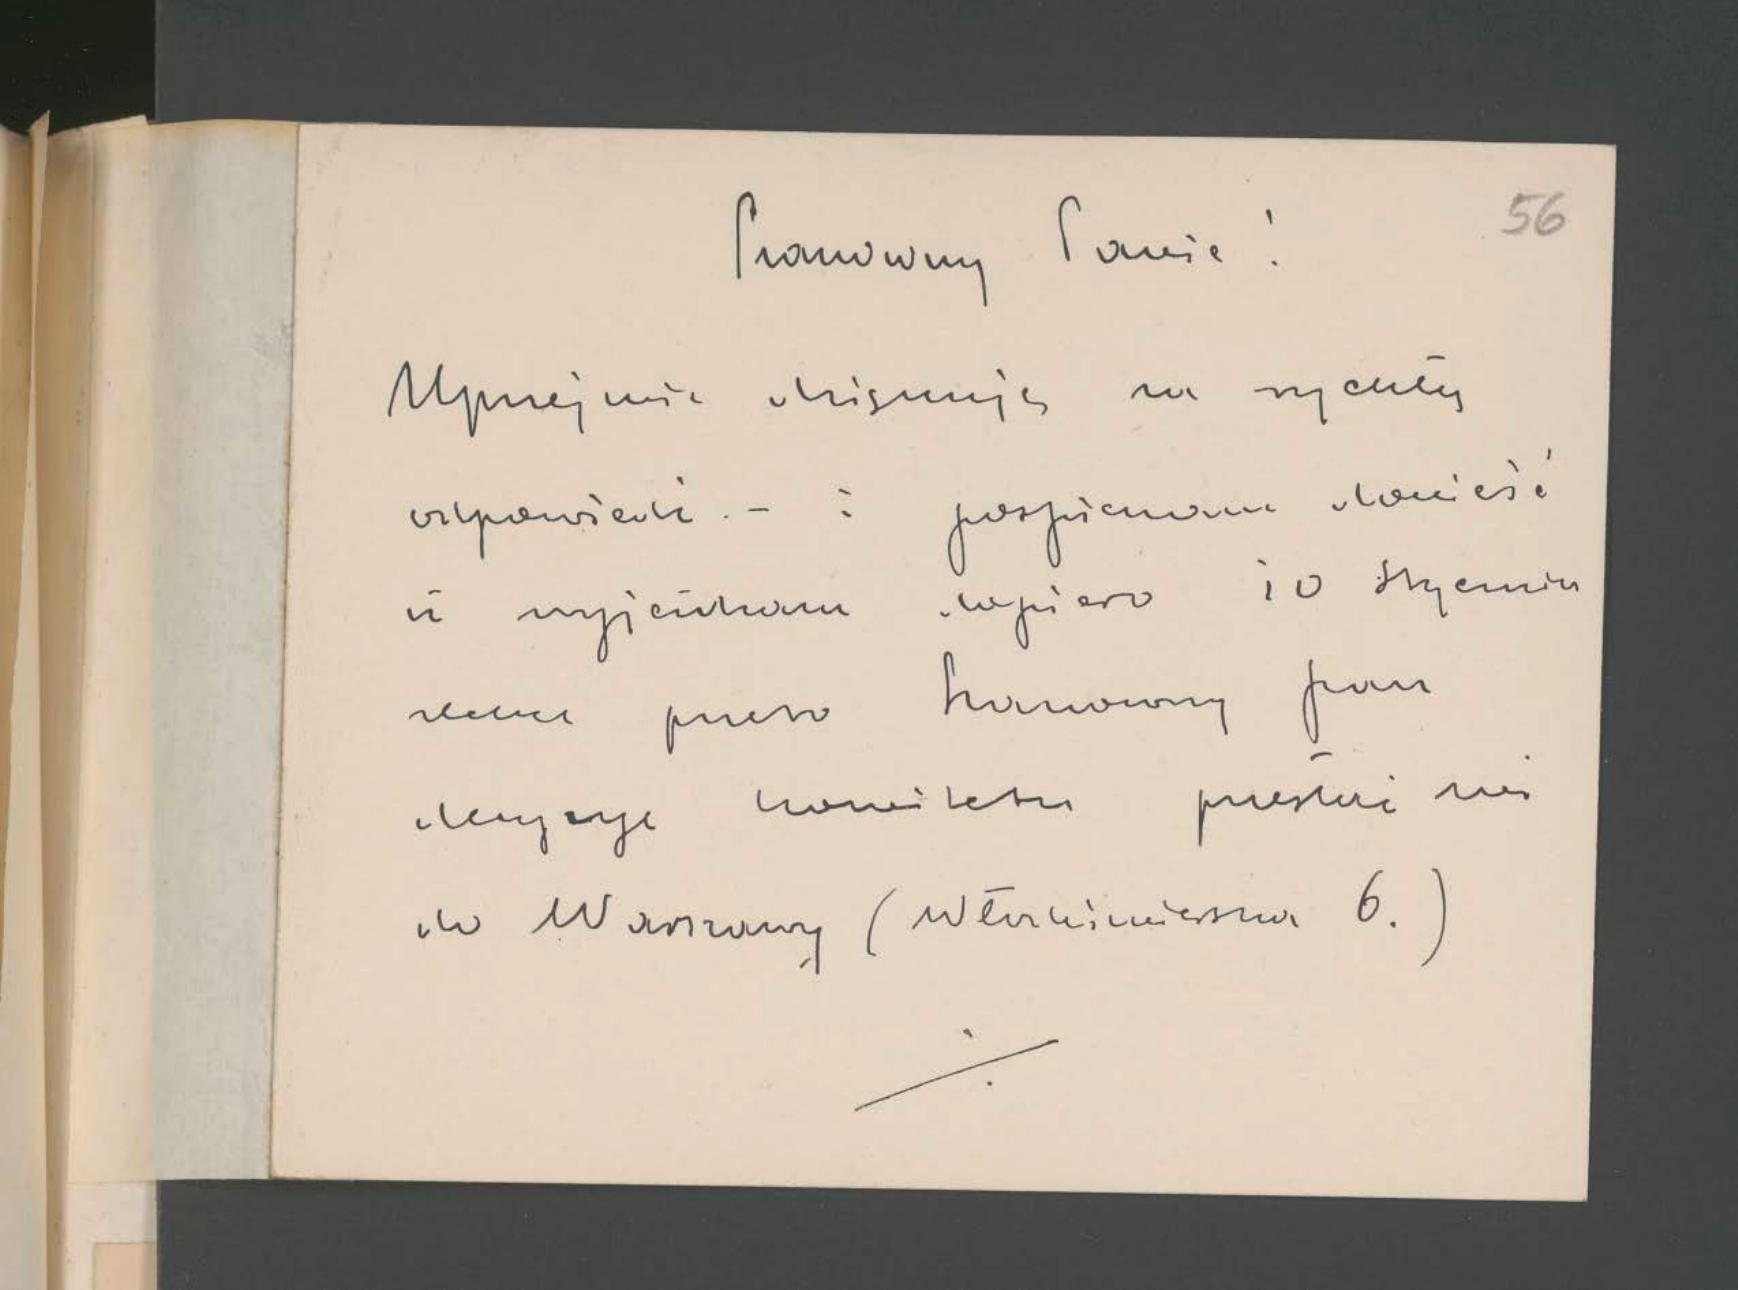 56
Szanowny Panie!
Uprzejmie dziękuję za rychłą
odpowiedź. – i pospieszam donieść
iż wyjeżdżam dopiero 10 Stycznia
zechce przeto Szanowny pan
decyzye komitetu przesłać mi
do Warszawy (Włodzimierska 6.)